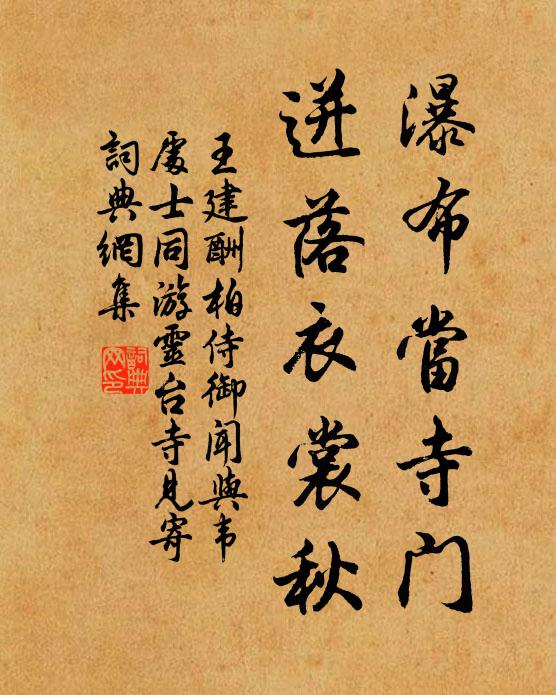 瀑布當寺门
迸落衣裳秋
王建酬柏侍御闻與韦
處士同游靈台寺見寄
詞典網集
詞典網印